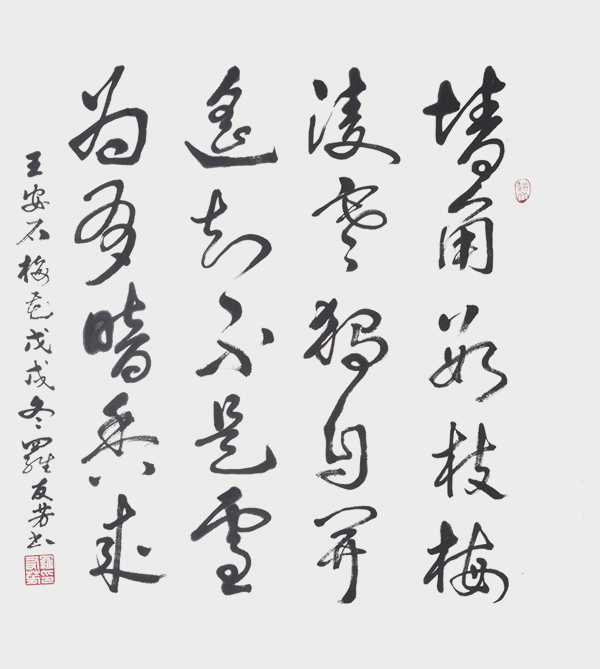 墙角数枝梅
凌寒獨自開
遥知不是雪
为有暗香来
王安石梅花戊戌冬羅友芳书